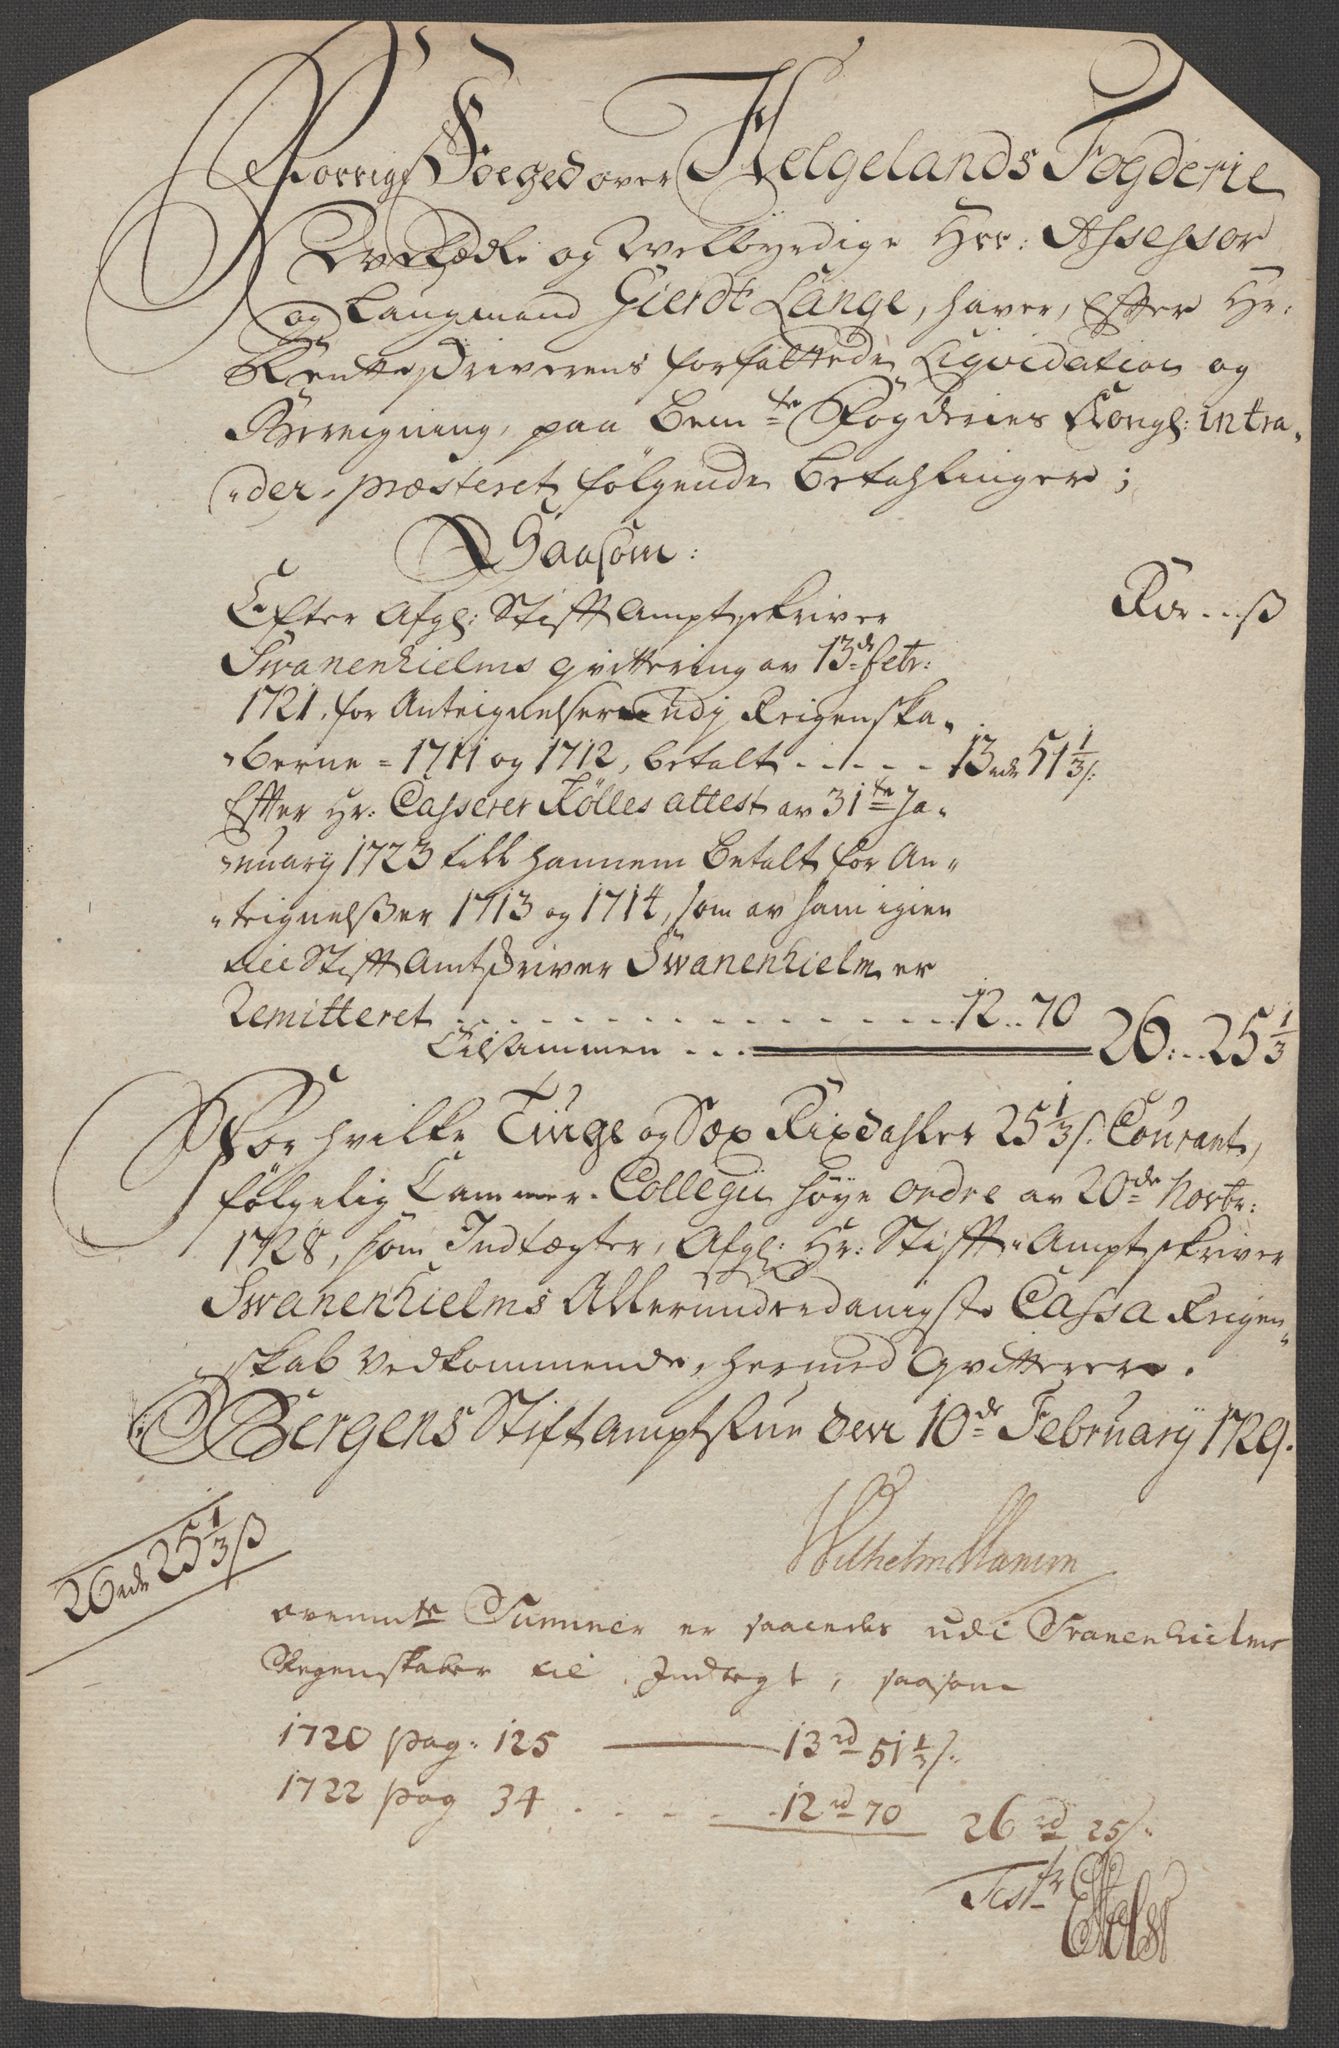 Forrige Foeged over Helgelands Fogderie
og Welbyrdige Hrr: Assessor
og Laugmand Gierdt Lange, haver, Efter Hr:
Renteskriverens forfattede Liqvidation og
Bereigning, paa bem:te Fögderies Kongl: intra„
„der, præsteret følgende betahlinger;
Saasom:
Efter Afgl: Stifft Amptskriver
Rdr...ß
Swanenhielms qvittering av 13de febr:
1721. for Anteignelser udj Reigenska„
„berne = 1711 og 1712, betalt ..... 13 rdr 51 1/3 s:
Efter Hr: Casserer Kölles attest av 31te Ja„
„nuary 1723 till hannem betalt for An„
„teignelßer 1713 og 1714, som av ham igien
til Stifft Amtskriver Swanenhielm er
Remitteret ..... 12..70
Tilsammen ... 26...25 1/3
For hvilke Tiuge og Sex Rixdahler 25 1/3 s: Courant,
følgelig Cammer-Collegii høye ordre av 20de Novbr:
1728, som Indtægter, Afgl: Hr: Stifft-Amptskriver
Swanenhielms Allerunderdanigste Cassa Reigen„
skab vedkommende, hermed Qvitterer.
Bergens Stiftamptstue den 10de February 1729.
26 rdr 25 1/3 ß
Wilhelm Hansen
ovenmte Summer er saaledes udi Svanenhielms
Regenskaber til Indtegt, saasom
1720 pag: 125 — 13 rd 51 1/3 s:
1722 pag 34 ..... 12 rd 70 26 rd 25 s:
Test: